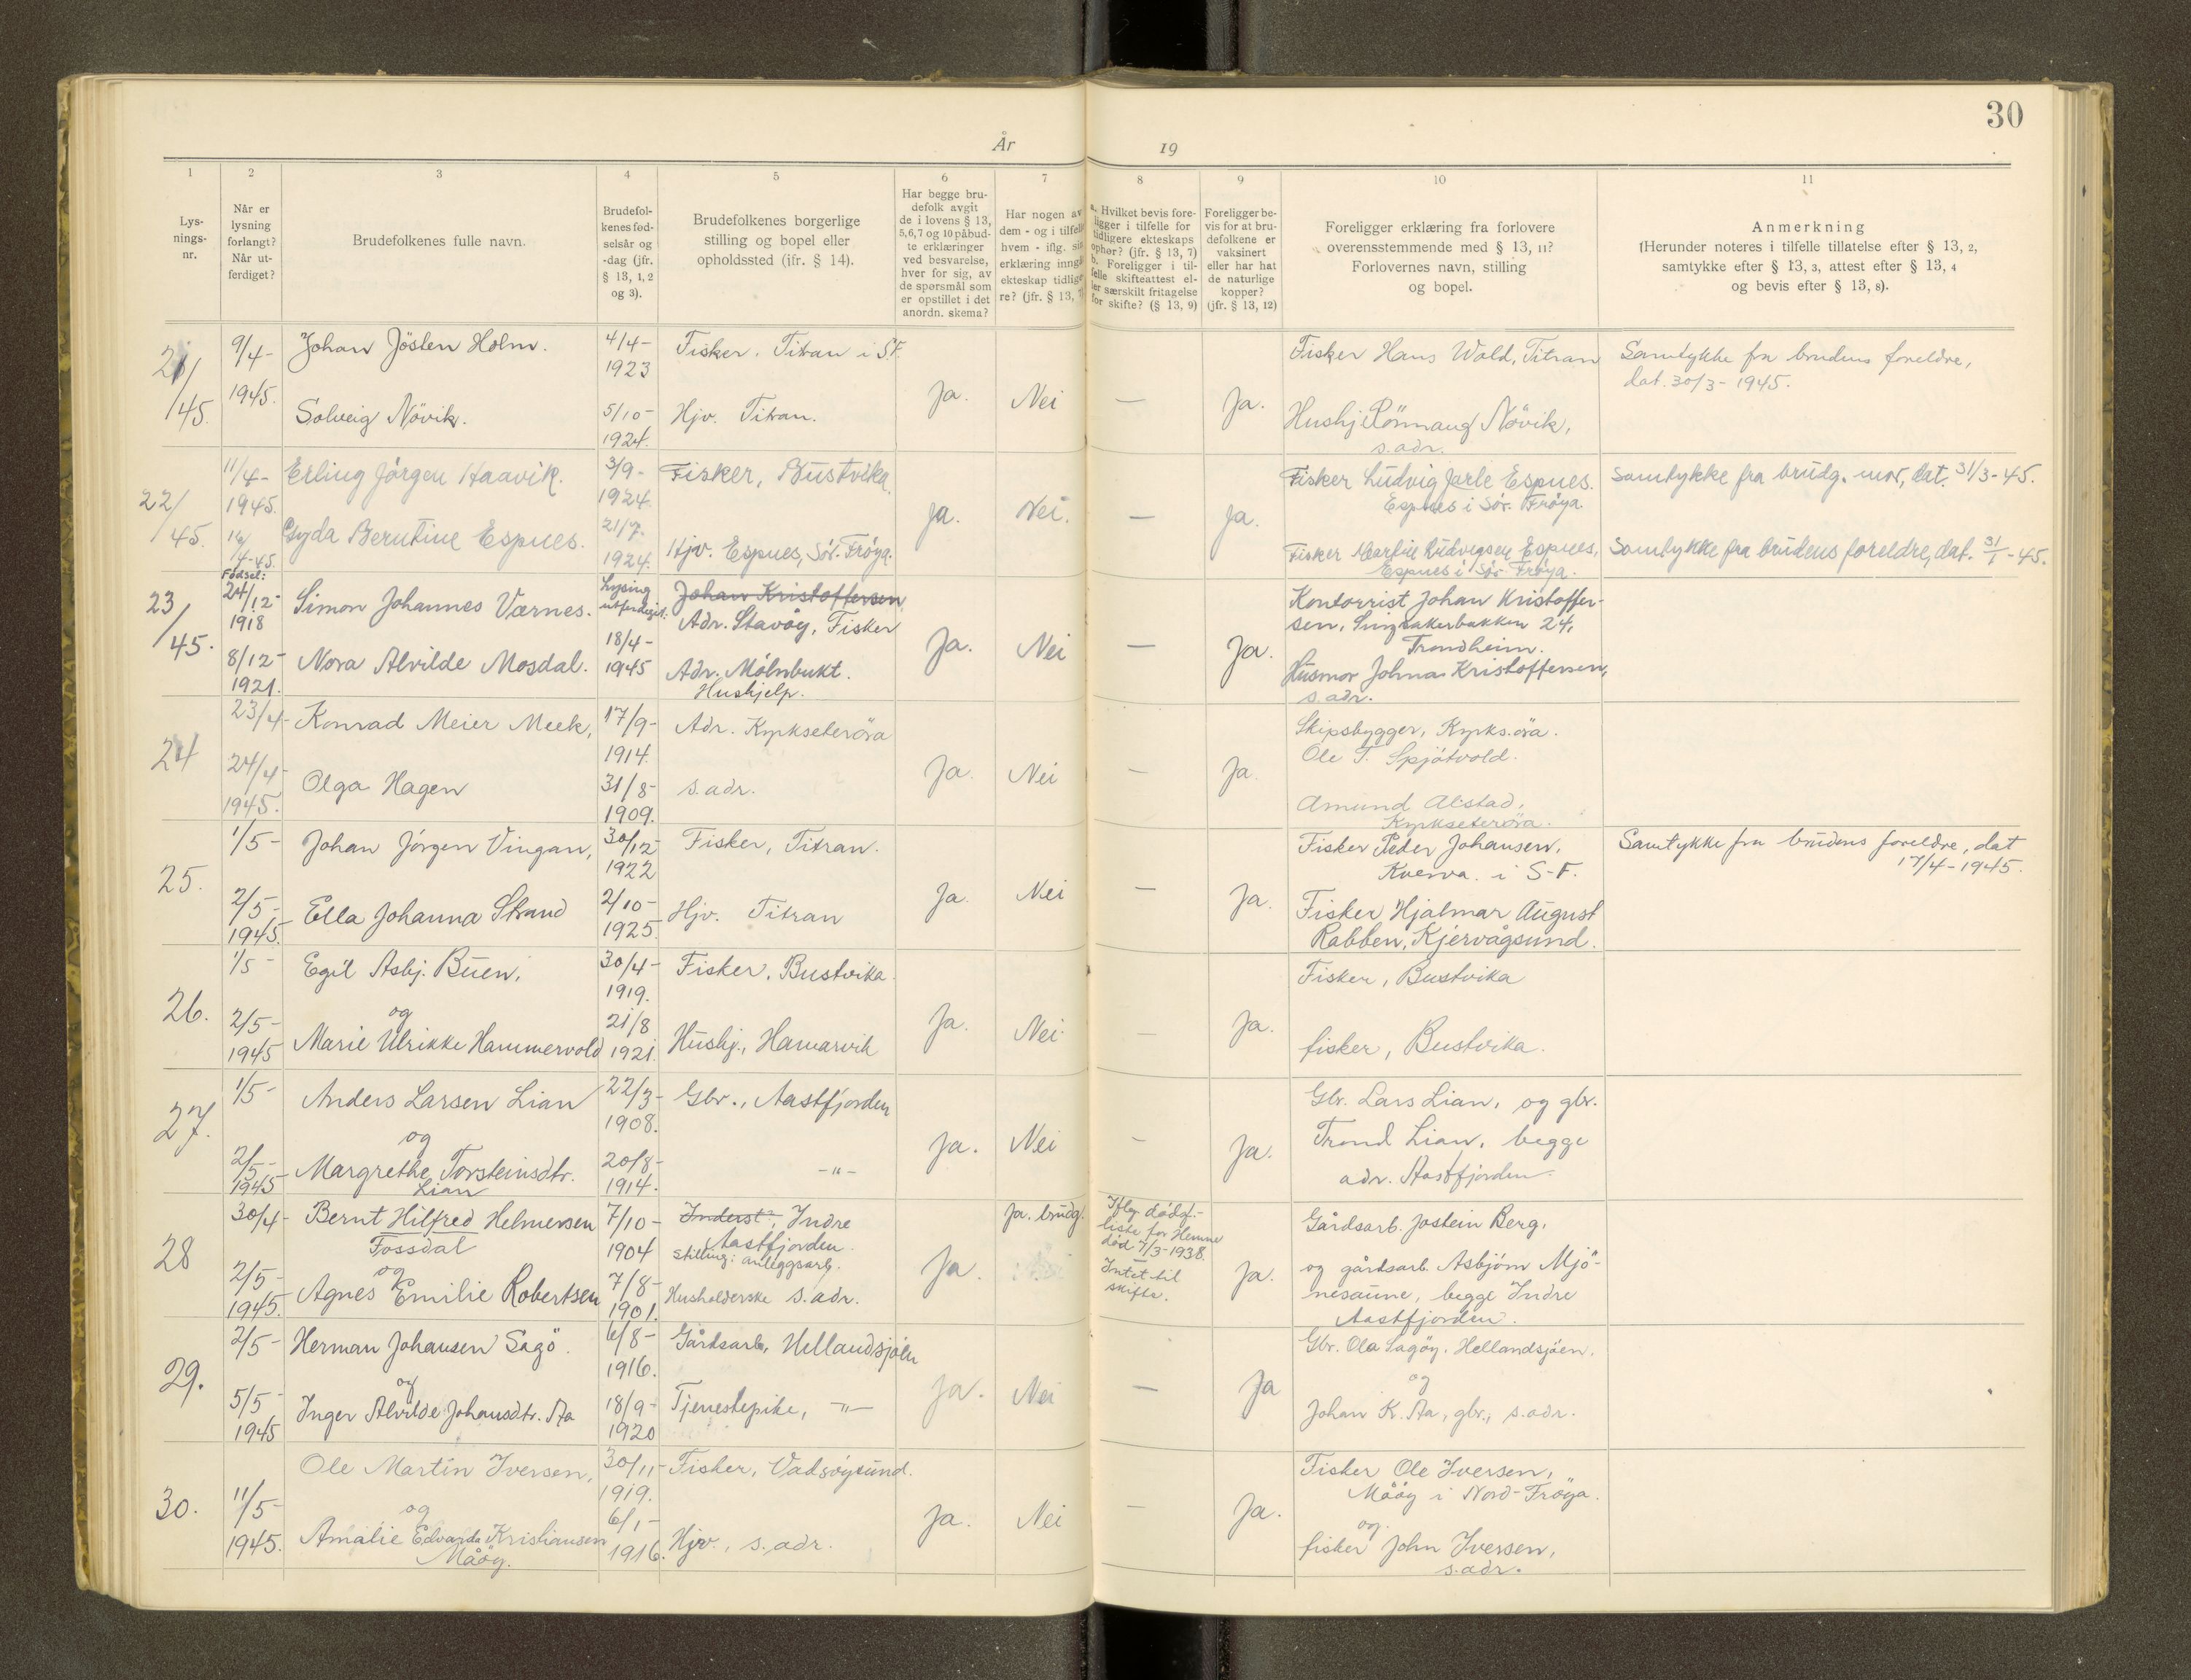 30
År 19
1 2 3 4 5 6 7 8 9 10 11
Lys-
nings-
nr.
Når er
lysning
forlangt?
Når ut-
ferdiget?
Brudefolkenes fulle navn.
Brudefol-
kenes fød-
selsår og
-dag (jfr.
§ 13, 1, 2
og 3).
Brudefolkenes borgerlige
stilling og bopel eller
opholdssted (jfr. § 14).
Har begge bru-
defolk avgit
de i lovens § 13,
5,6,7 og 10 påbud-
te erklæringer
ved besvarelse,
hver for sig, av
de spørsmål som
er opstillet i det
anordn. skema?
Har nogen av
dem - og i tilfelle
hvem - iflg. sin
erklæring inngå
ekteskap tidlige-
re? (jfr. § 13,
a. Hvilket bevis fore-
ligger i tilfelle for
tidligere ekteskaps
ophør? (jfr. § 13, 7)
b. Foreligger i til-
felle skifteattest el-
ler særskilt fritagelse
for skifte? (§ 13, 9)
Foreligger be-
vis for at bru-
defolkene er
vaksinert
eller har hat
de naturlige
kopper?
(jfr. § 13, 12)
Foreligger erklæring fra forlovere
overensstemmende med § 13, 11?
Forlovernes navn, stilling
og bopel.
Anmerkning
(Herunder noteres i tilfelle tillatelse efter § 13, 2,
samtykke efter § 13, 3, attest efter § 13, 4
og bevis efter § 13, 8).
21/
/45.
9/4-
1945.
Johan Jösten Holm.
Solveig Növik.
4/4-
1923
5/10-
1924.
Fisker. Titran i S.F.
Hjv. Titran.
Ja.
Nei
—
Ja.
Fisker Hans Wold, Titran
Hushj Rönnaug Növik,
s.adr.
Samtykke fra brudens foreldre,
dat. 30/3-1945.
22/
45.
11/4-
1945.
16/
4-45.
Erling Jörgen Haavik.
Gyda Berntine Espnes.
3/9-
1924.
21/7.
1924.
Fisker, Bustvika.
Hjv. Espnes, Sör-Fröya.
Ja.
Nei.
—
Ja.
Fisker Ludvig Jarle Espnes.
Espnes i Sör. Fröya.
Fisker Martin Ludvigsen Espnes,
Espnes i Sör Fröya.
Samtykke fra brudg. mor, dat. 31/3-45.
Samtykke fra brudens foreldre, dat. 31/1-45.
23/
45.
Födsel:
24/12-
1918
8/12-
1921.
Simon Johannes Værnes.
Nora Alvilde Mosdal.
Lysing
utferdiget:
18/4-
1945
Johan Kristoffersen
Adr. Stavöy, Fisker
Adr. Mölnbukt.
Hushjelp.
Ja.
Nei
—
Ja.
Kontorrist Johan Kristoffer-
sen, Singsakerbakken 24,
Trondheim.
Husmor Johna Kristoffersen,
s.adr.
24
23/4-
24/4-
1945.
Konrad Meier Meek,
Olga Hagen
17/9-
1914.
31/8-
1909.
Adr. Kyrkseteröra
s.adr.
Ja.
Nei
—
Ja.
Skipsbygger, Kyrks.öra.
Ole T. Spjötvold.
Amund Alstad,
Kyrkseteröra.
25.
1/5-
2/5-
1945.
Johan Jörgen Vingan,
Ella Johanna Strand
30/12-
1922
2/10-
1925.
Fisker, Titran.
Hjv. Titran
Ja.
Nei
—
Ja.
Fisker Peder Johansen,
Kverva. i S-F.
Fisker Hjalmar August
Rabben, Kjervågsund.
Samtykke fra brudens foreldre, dat
17/4-1945.
26.
1/5-
2/5-
1945
Egil Asbj. Buen,
og
Marie Ulrikke Hammervold
30/4-
1919.
21/8
1921.
Fisker, Bustvika.
Hushj., Hamarvik
Ja.
Nei.
—
Ja.
Fisker, Bustvika
fisker, Bustvika.
27.
1/5-
2/5-
1945
Anders Larsen Lian
og
Margrethe Torsteinsdtr.
Lian
22/3-
1908.
20/8-
1914.
Gbr., Aastfjorden
-"-
Ja.
Nei
-
Ja.
Gbr. Lars Lian, og gbr.
Trond Lian, begge
adr. Aastfjorden.
28
30/4-
2/5-
1945.
Bernt Hilfred Helmersen
Fossdal
og
Agnes Emilie Robertsen
7/10-
1904
7/8-
1901.
Inderst, Indre
Aastfjorden.
Stilling: anleggsarb.
Husholderske s.adr.
Ja.
Ja. brudg.
Iflg. dödsf.-
liste for Hemne
död 7/3-1938.
Intet til
skifte.
Ja.
Gårdsarb. Jostein Berg,
og gårdsarb. Asbjörn Mjö-
nesaune, begge Indre
Aastfjorden.
29.
2/5-
5/5-
1945
Herman Johansen Sagö.
og
Inger Alvilde Johansdtr. Aa
6/8-
1916.
18/9-
1920
Gårdsarb, Hellandsjöen
Tjenestepike, -"-
Ja.
Nei
—
Ja
Gbr. Ola Sagöy, Hellandsjöen.
og
Johan K. Aa, gbr., s.adr.
30.
11/5-
1945.
Ole Martin Iversen,
og
Amalie Edvarda Kristiansen
Måöy.
30/11-
1919.
6/1-
1916.
Fisker, Vadsöysund.
Hjv., s.adr.
Ja.
Nei
—
Ja.
Fisker Ole Iversen,
Måöy i Nord-Fröya.
og.
fisker John Iversen,
s.adr.